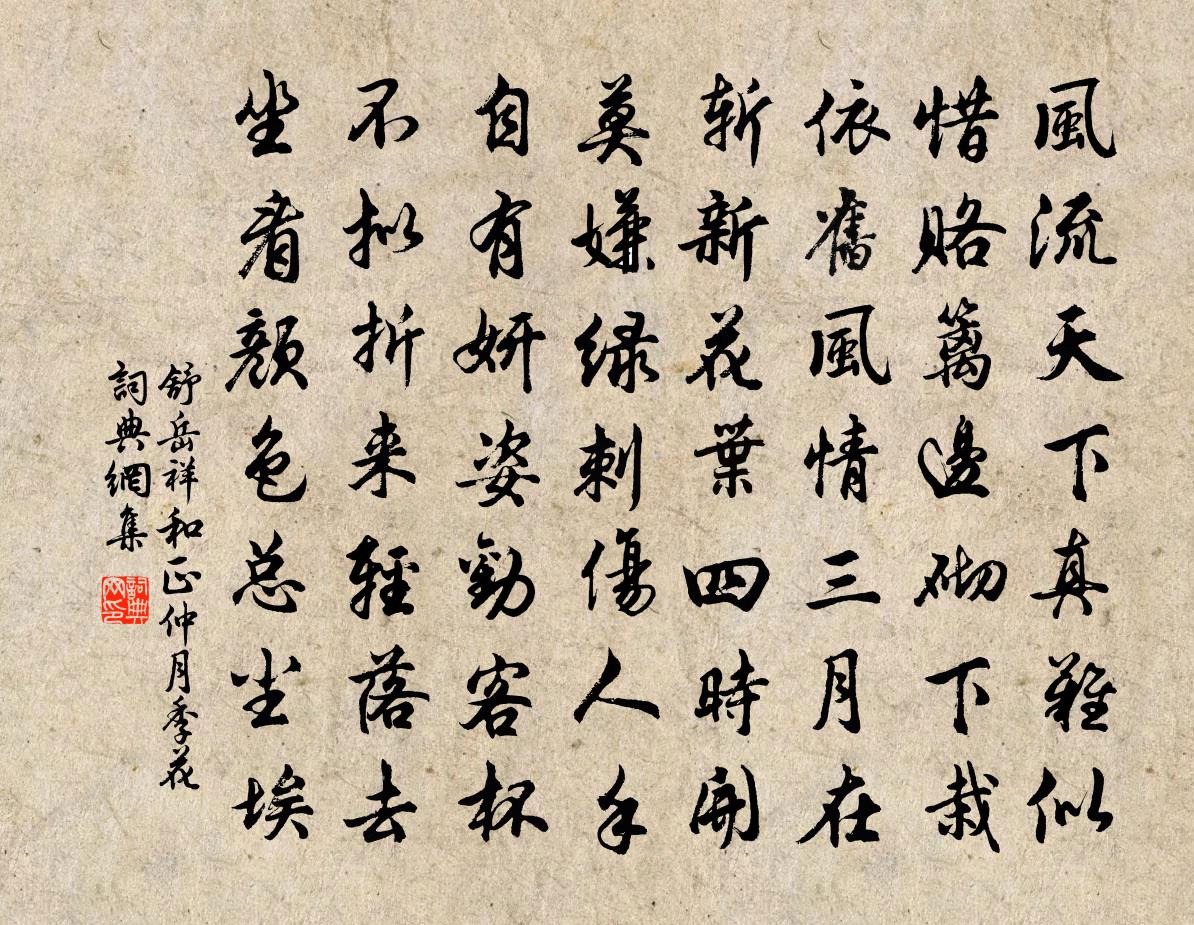 風流天下真難似
惜賂篱邊砌下栽
依舊風情三月在
斬新花葉四時開
莫嫌緑刺傷人手
自有妍姿勸客杯
不拟折来輕落去
坐看顔色总尘埃
舒岳祥和正仲月季花
詞典網集
詞典网印